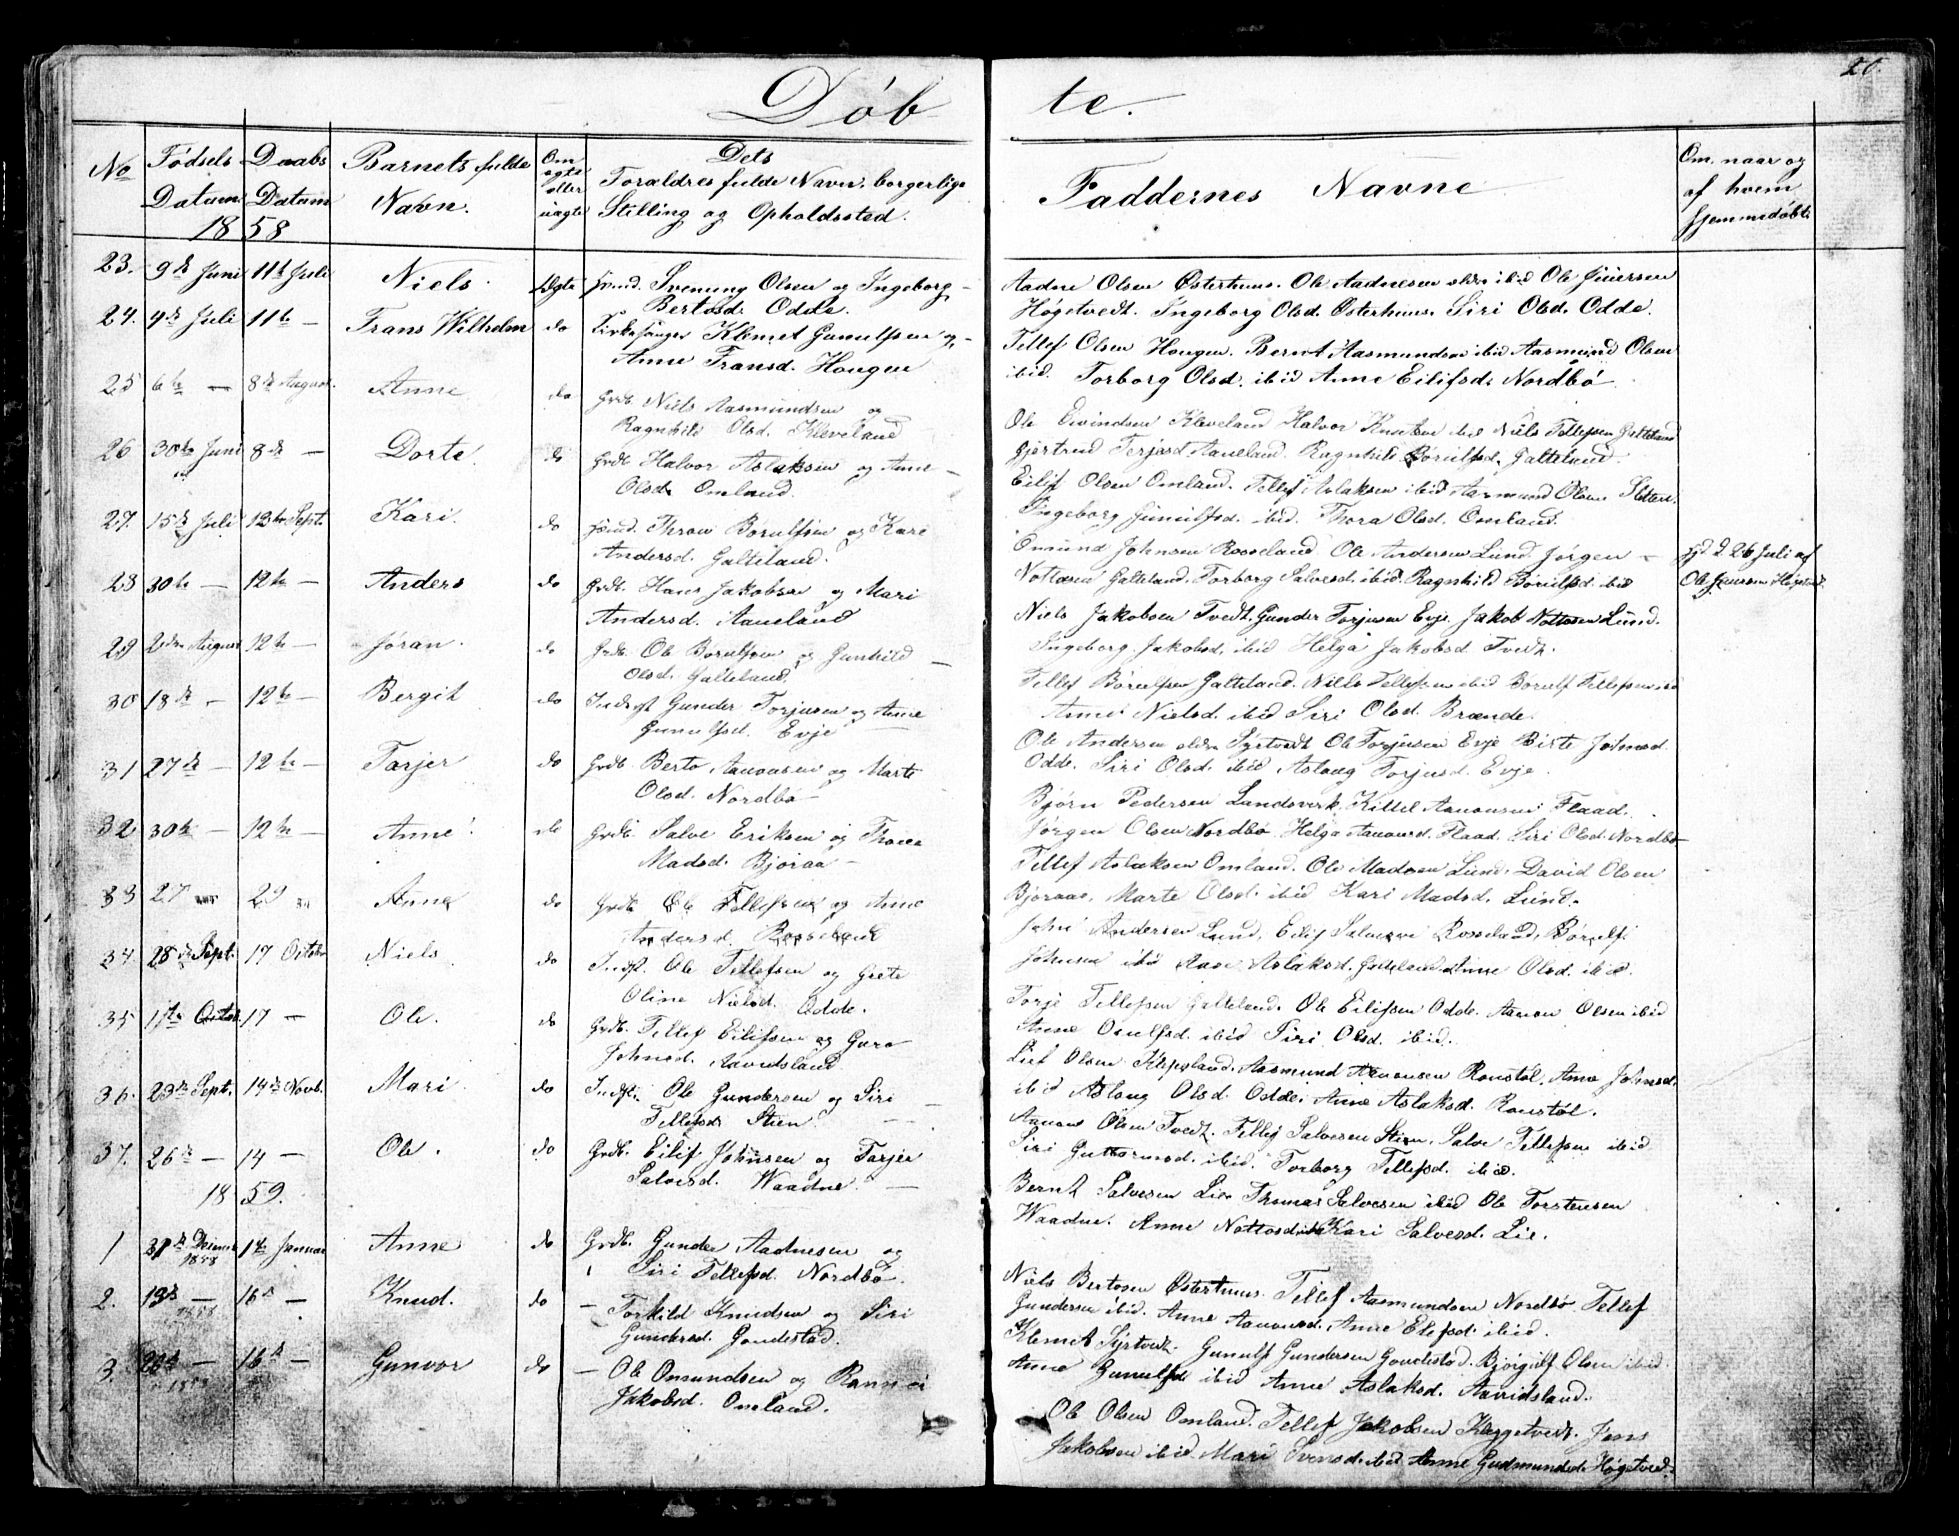 20.
Døb te.
No
Fødsels Datum
Daabs Datum
Barnets fulde Navn.
Om ægte eller uægte
Dets Forældres fulde Navn, borgerlige Stilling og Opholdssted.
Faddernes Navne
Om, naar og af hvem hjemmedøbt.
1858
23. 9de Juni 11te Juli Niels. Ægte Svenung Olsen og Ingeborg
Bertosd. Odde.
Aadne Olsen Østerhuus. Ole Aadnesen ældre ibid Ole
Høgetvedt. Ingeborg Olsd. Østerhuus. Siri Olsd. Odde.
24. 4de Juli 11te — Frans Wilhelm do Kirkesanger Klemet Gunulfsen og
Anne Fransd. Hougen
Tellef Olsen Hougen. Bernt Aasmundsen ibid Aasmund Olsen
ibid. Torborg Olsd. ibid Anne Eilifsd. Nordbø
25 6te — 8de August. Anne do Grdb. Niels Aasmundsen og
Ragnhild Olsd. Kleveland
Ole Eivindsen Kleveland Halvor Knutsen ibid Niels Tellefsen Galteland
Gjertrud Terjesd. Aaneland. Ragnhild Borulfsd. Galteland.
26 30te Juni 8de — Dorte. do Grdb. Halvor Aslaksen og Anne
Olsd. Omland.
Eilif Olsen Omland. Tellef Aslaksen ibid Aasmund Olsen
Ingeborg Gunulfsd. ibid. Thora Olsd. Omland.
27. 15de Juli 12te Sept. Kari. do Throw Borulfsen og Kari
Andersd. Galteland.
Omund Johnsen Rosseland Ole Andersen Lund. Jørgen —
Nottosen Galteland. Torborg Salvesd. ibid. Ragnhild Borulfsd. ibid
hjd. d. 26 Juli af
Ole
28 30te — 12te — Anders do Grdb. Hans Jakobsen og Mari
Andersd. Aaneland
Niels Jakobsen Tvedt. Gunder Torjusen Evje. Jakob Nottosen Lund.
Ingeborg Jakobsd. ibid Helga Jakobsd. Tvedt.
29 2den August 12te — Jøran. do Grdb. Ole Borulfsen og Gunhild —
Olsd. Galteland.
Tellef Borulfsen Galteland. Niels Tellefsen ibid Borulf Tellefsen ibid
Anne Nielsd. ibid Siri Olsd. Brænde.
30 18de — 12te — Bergit do Indst. Gunder Torjusen og Anne
Gunulfsd. Evje
Ole Andersen ældre Syrtvedt Ole Torjusen Evje Birte Johnsd.
Odde. Siri Olsd. ibid. Aslaug Torjusd. Evje.
31 27de — 12te — Tarjer do Grdb. Berto Aanonsen og Marte
Olsd. Nordbø
Bjørn Pedersen Landsverk. Kittel Aanonsen Flaad.
Jørgen Olsen Nordbø Helga Aanonsd. Flaad. Siri Olsd. Nordbø
32 30te — 12te — Anne. do Grdb. Salve Eriksen og Thora
Madsd. Bjoraa —
Tellef Aslaksen Omland. Ole Madsen Lund. David Olsen
Bjoraa. Marte Olsd. ibid Kari Madsd. Lund.
33 27 — 29 Anne do Grdb. Ole Tellefsen og Anne
Andersd. Rosseland
John Andersen Lund. Eilif Salvesen Rosseland, Børulf
Johnsen ibid Aase Aslaksd. Galteland Anne Olsd. ibid.
34. 28de Sept. 17 October Niels do Indst. Ole Tellefsen og Grete
Oline Nielsd. Odde.
Torje Tellefsen Galteland. Ole Eilifsen Odde. Aanon Olsen ibid
Anne Onulfsd. ibid Siri Olsd. ibid.
35 11te Octob. 17 — Ole. do Grdb. Tellef Eilifsen og Guro
Johnsd. Aavidsland
Lief Olsen Klepsland. Aasmund Aanonsen Ronstøl. Anne Johnsd.
ibid Aslaug Olsd. Odde. Anne Aslaksd. Ronstøl.
36. 23de Sept. 14de Novb. Mari do Indst. Ole Gundersen og Siri
Tellefsd. Stien
Aanon Olsen Tvedt. Tellef Salvesen Stien. Salve Tellefsen ibid
Siri Guttormsd. ibid. Torborg Tellefsd. ibid.
37. 26de — 14 — Ole. do Grdb. Eilif Johnsen og Tarjer
Salvesd. Waadne. —
Bernt Salvesen Lie Thomas Salvesen ibid Ole Torstensen
Waadne. Anne Nottosd. ibid Kari Salvesd. Lie.
1859.
1 31de Decemb 1858 14de Januar Anne do Grdb. Gunder Aadnesen og
Siri Tellefsd. Nordbø.
Niels Bertosen Østerhuus. Tellef Aasmundsen Nordbø Tellef
Gundersen ibid. Anne Aanonsd. Anne Elefsd. ibid.
2. 13de — 1858 16de — Knud. do — Torkild Knudsen og Siri
Gundersd. Goudestad.
Klemet Syrtvedt. Gunulf Gundersen Goudestad. Bjørgulf Olsen ibid.
Anne Gunulfsd. ibid Anne Aslaksd. Aavidsland.
3. — 1858 16de — Gunvor do — Ole Omundsen og Rannei
Jakobsd. Omland.
Ole Olsen Omland. Tellef Jakobsen Jens
Jakobsen ibid Mari Svensd. ibid Anne Gudmundsd. Høgetvedt.